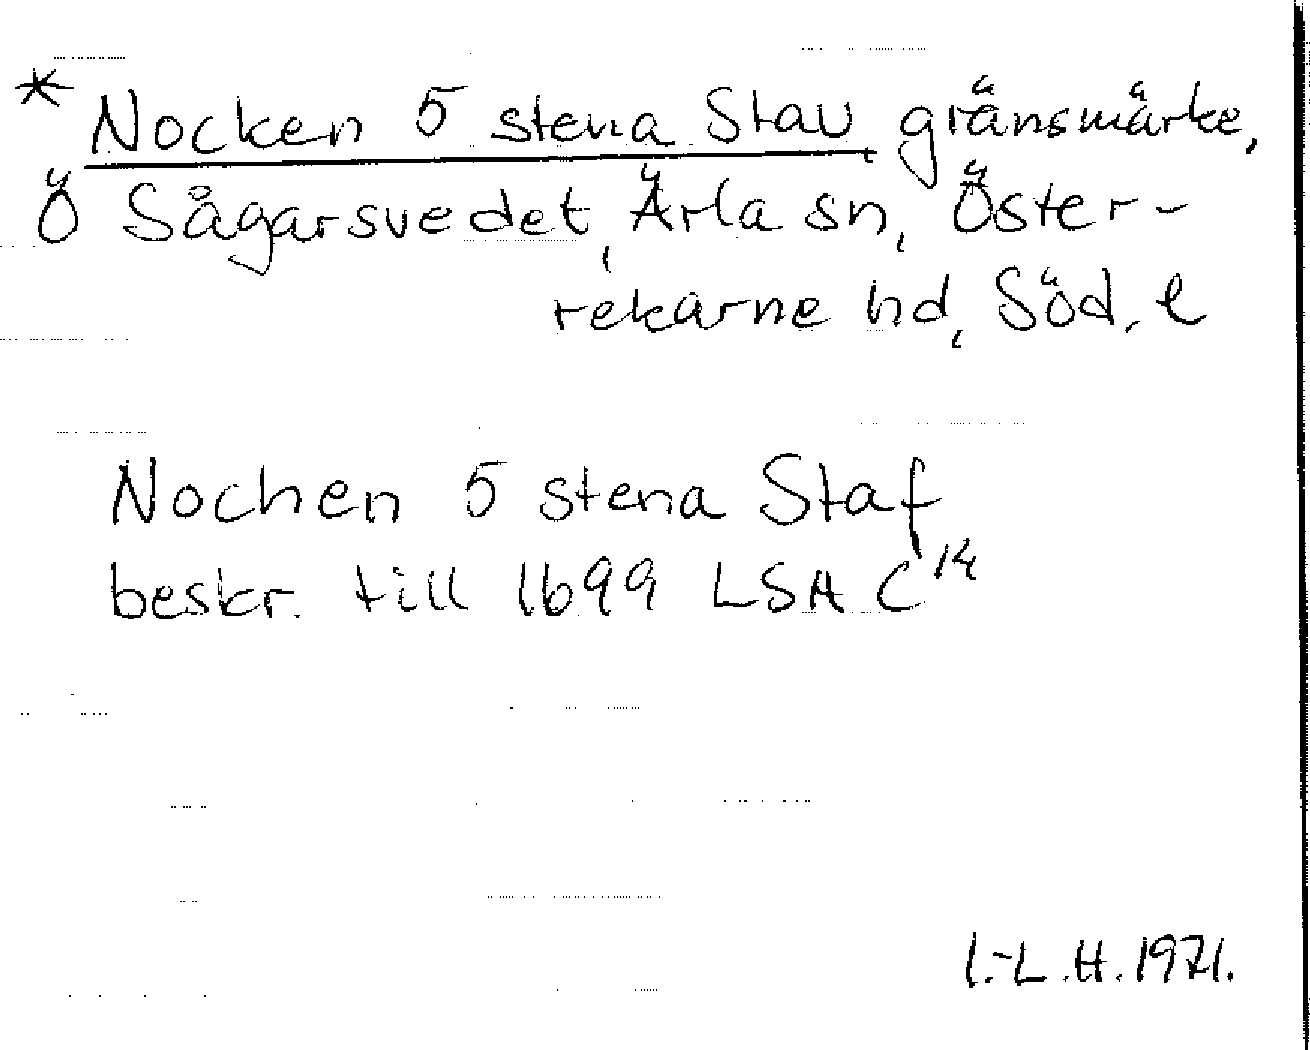 * Nocken 5 stena Stav gränsmärke,
Ö Sågarsvedet, Ärla sn, Öster-
rekarne hd, Söd. l
Nochen 5 stena Staf
beskr. till 1699 LSA C 14
I.-L.H. 1971.